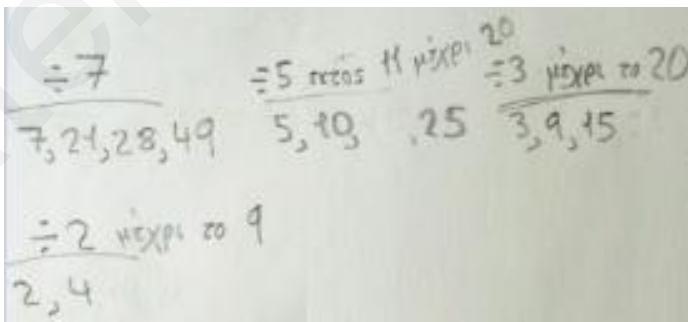 ÷7
7, 21, 28, 49
÷5 εκτός 11 μέχρι 20
5, 10, , 25
÷3 μέχρι το 20
3, 9, 15
÷2 μέχρι το 9
2, 4